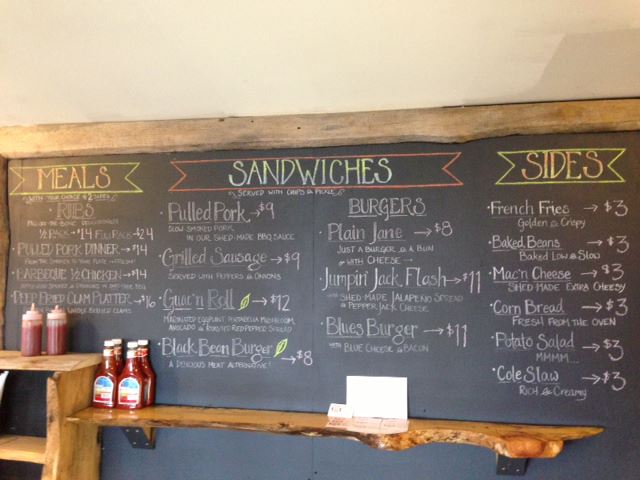 MEALS
WITH YOUR CHOICE of 2 SIDES
RIBS
FALL OFF THE BONE
1/2 RACK - $14 FULL RACK - $24
PULLED PORK DINNER → $14
FROM THE SMOKER TO YOUR PLATE
BARBECUE 1/2 CHICKEN → $14
DEEP FRIED CLAM PLATTER → $16
CLAMS
SANDWICHES
SERVED WITH CHIPS & PICKLE
Pulled Pork → $9
SLOW SMOKED PORK
IN OUR SHED-MADE BBQ SAUCE
Grilled Sausage → $9
SERVED WITH PEPPERS & ONIONS
Guac'n Roll → $12
MARINATED EGGPLANT, PORTABELLA MUSHROOM,
AVOCADO & ROASTED RED PEPPER SPREAD
Black Bean Burger → $8
A DELICIOUS MEAT ALTERNATIVE!
BURGERS
Plain Jane → $8
JUST A BURGER & A BUN
WITH CHEESE
Jumpin' Jack Flash → $11
WITH SHED MADE JALAPENO SPREAD
& PEPPER JACK CHEESE
Blues Burger → $11
WITH BLUE CHEESE & BACON
SIDES
French Fries → $3
Golden & Crispy
Baked Beans → $3
Baked Low & Slow
Mac'n Cheese → $3
SHED MADE EXTRA CHEESY
Corn Bread → $3
FRESH FROM THE OVEN
Potato Salad → $3
MMMM...
Cole Slaw → $3
RICH & Creamy